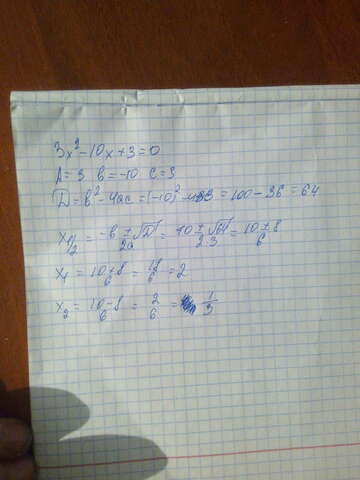 3x²-10x+3=0
A=3 b=-10 c=3
D=b²-4ac=(-10)²-4·3·3=100-36=64
x1/2=-b±√D/2a=10±√64/2·3=10±8/6
x1=10+8/6=18/6=2
x2=10-8/6=2/6=1/3